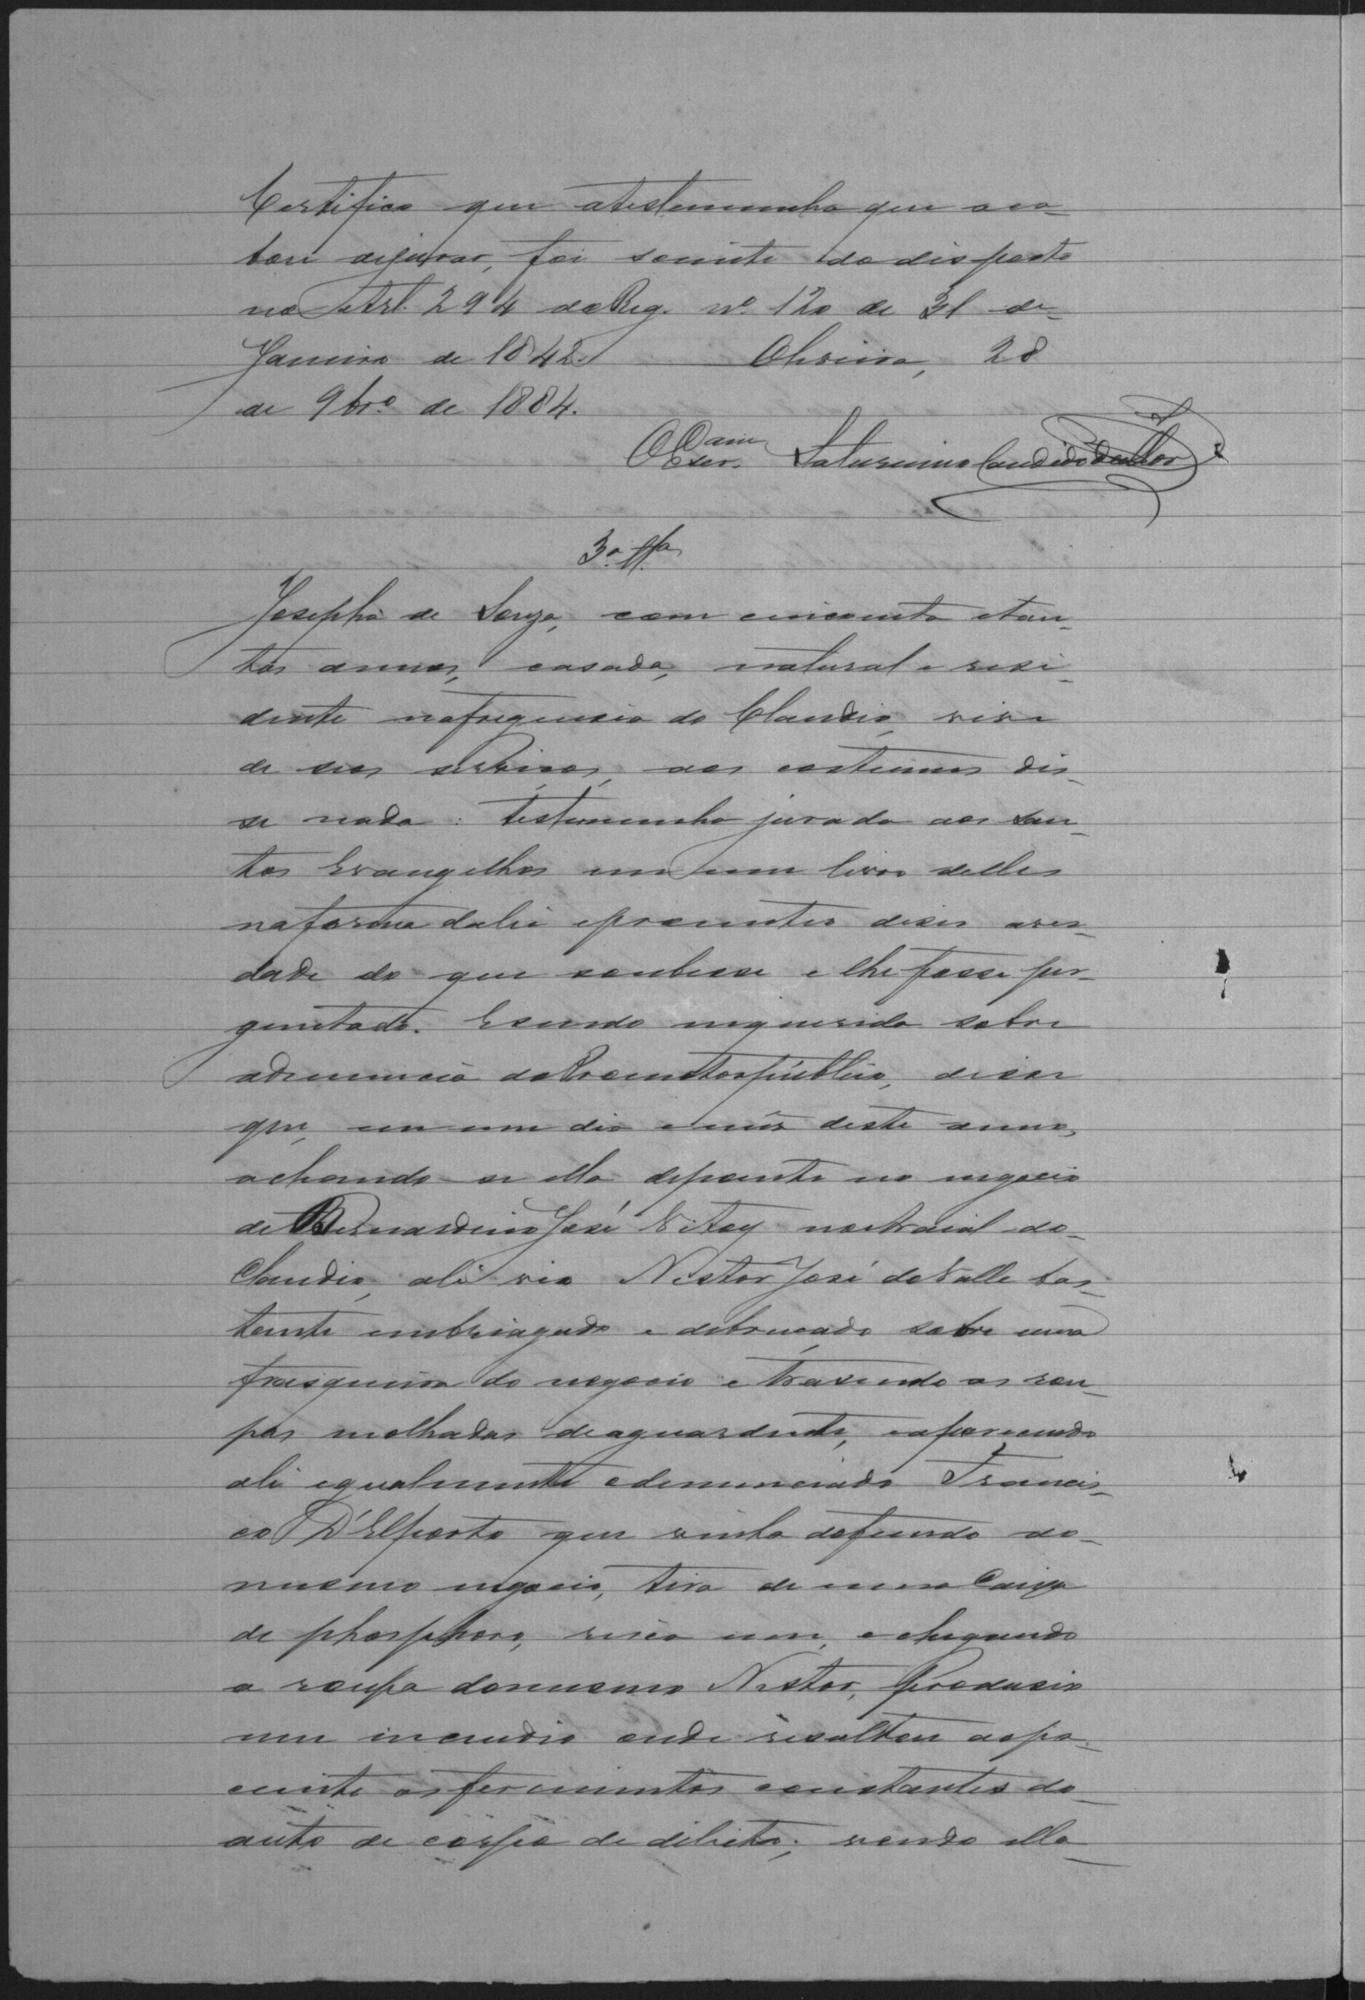 Certifico que atestemunha que aca-
bou dejurar, foi sciente do disposto
no Art. 294 do Reg. nº 120 de 31 de
Janeiro de 1842. Oliveira, 28
de 9brº de 1884.
O Escr.am Saturnino Candido
3ª Ttª
Josepha de Souza, com cincoenta etan-
tos annos, casada, natural e resi-
dente nafreguesia do Claudio, vive
de seos serviços, aos costumes dis-
se nada: testemunha jurada aos San-
tos Evangelhos em um livro delles
naforma dalei eprometteo diser aver-
dade do que soubesse e lhe fosse per-
guntado. Esendo inquerida sobre
adenuncia doPromotor publico, disse
que, em um dia e mês deste anno,
achando-se ella depoente no negocio
de Bernardino José Vitoy noarraial do
Claudio, ali vio Nestor José do Valle bas-
tante embriagado e debruçado sobre uma
frasqueira do negocio e trasendo as rou-
pas molhadas de aguardente, eaparecendo
ali egualmente odenunciado Francis-
co D'Elporto que vinha dofundo do
mesmo negocio, tira de uma Caixa
de phosphoro, risca um, e chegando
a roupa domesmo Nestor, Produsio
um incendio onde resultou aopa-
ciente os ferimentos constantes do
auto de corpo de delicto; vendo ella